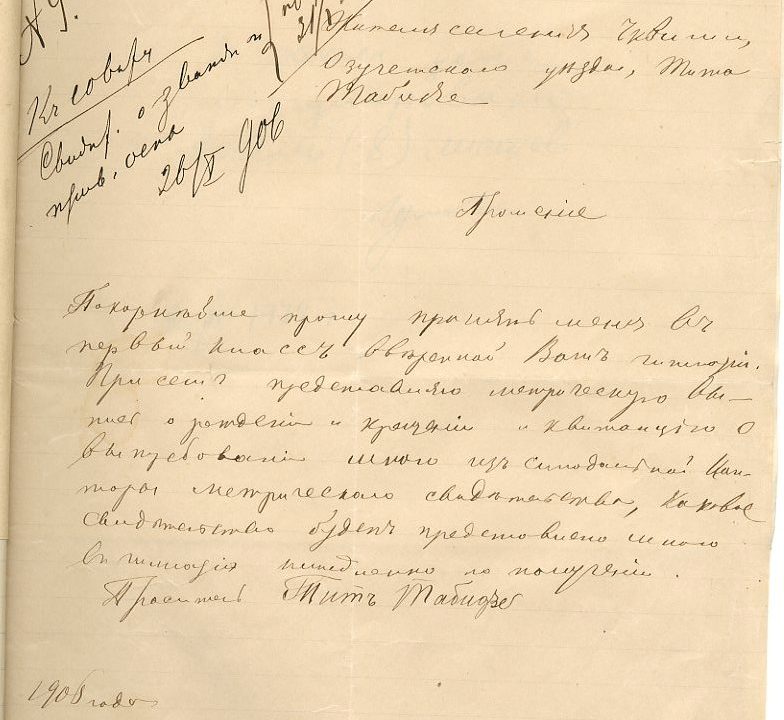 Къ совѣту
Свидѣт. о звании и
прив. оспа
26/X 906
31/X
Жителя селенiя Чквиши,
Озургетскаго уѣзда, Тита
Табидзе
Прошенiе
Покорнѣйше прошу принять меня въ
первый классъ ввѣренной Вамъ гимназiи.
При семъ представляю метрическую вы-
пись о рожденiи и крещенiи и квитанцiю о
вытребованiи мною изъ синодальной Кон-
торы метрическаго свидѣтельства, каковое
свидѣтельство будетъ представлено мною
въ гимназiю немедленно по полученiи.
Проситель Титъ Табидзе
190 года